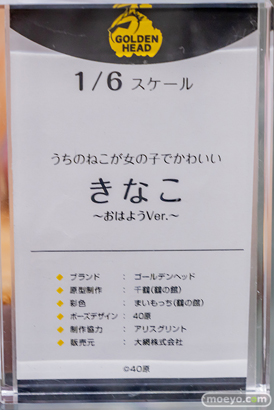 GOLDEN
HEAD
1/6 スケール
うちのねこが女の子でかわいい
きなこ
～おはようVer.～
◆ ブランド ： ゴールデンヘッド
◆ 原型制作 ： 千鶴(鶴の館)
◆ 彩色 ： まいもっち(鶴の館)
◆ ポーズデザイン ： 40原
◆ 制作協力 ： アリスグリント
◆ 販売元 ： 大網株式会社
©40原
moeyo.com